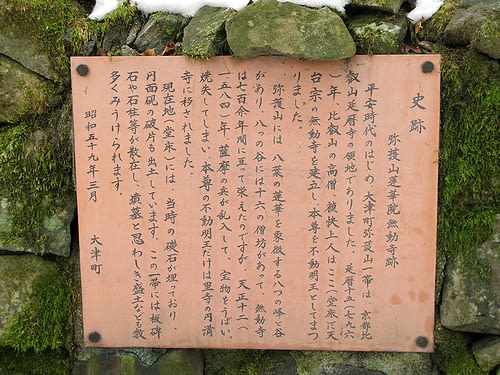 史跡
弥護山蓮華院無動寺跡
平安時代のはじめ、大津町弥護山一帯は、京都比
叡山延暦寺の領地でありました。延暦十五(七九六
)年、比叡山の高僧、被快上人はここ(堂床)に天
台宗の無動寺を建立し、本尊を不動明王としてまつ
りました。
弥護山には、八葉の蓮華を象徴する八つの峰と谷
があり、八つの谷には十六の僧坊があって、無動寺
は七百余年間に亘って栄えたのですが、天正十二(
一五八四)年、薩摩の兵が乱入して、宝物をうばい、
焼失してしまい、本尊の不動明王だけは里寺の円満
寺に移されました。
現在地(堂床)には、当時の礎石が埋っており、
円面硯の破片も出土しています。この一帯には板碑
石や石柱等が散在し、墳墓と思わしき盛土なども数
多くみうけられます。
昭和五十九年三月
大津町